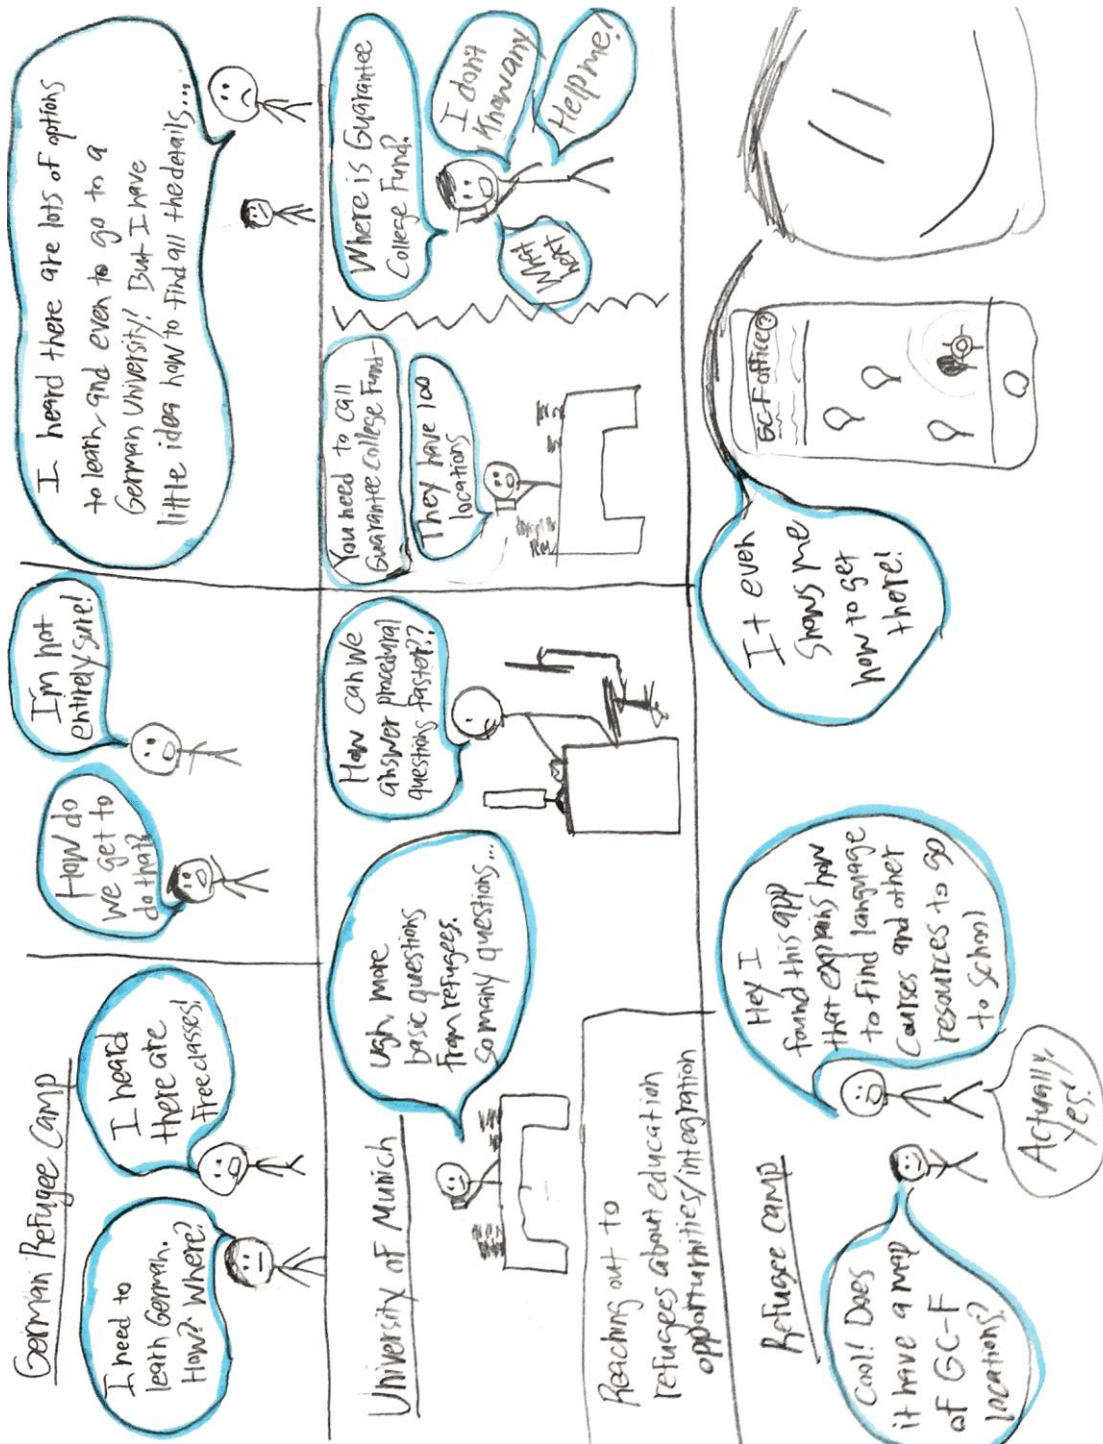 German Refugee Camp
I need to
learn German.
How? Where?
I heard
there are
free classes!
How do
we get to
do that?
I'm not
entirely sure!
I heard there are lots of options
to learn and even to go to a
German University! But I have
little idea how to find all the details...
University of Munich
Ugh, more
basic questions
from refugees.
So many questions...
How can we
answer procedural
questions faster??
You need to call
Guarantee College Fund-
They have 100
locations
Where is Guarantee
College Fund?
I don't
know any
Help me!
Reaching out to
refugees about education
opportunities/integration
Refugee Camp
Cool! Does
it have a map
of GC-F
locations?
Hey I
found this app
that explains how
to find language
courses and other
resources to go
to school
Actually,
yes!
It even
shows me
how to get
there!
GC-F office